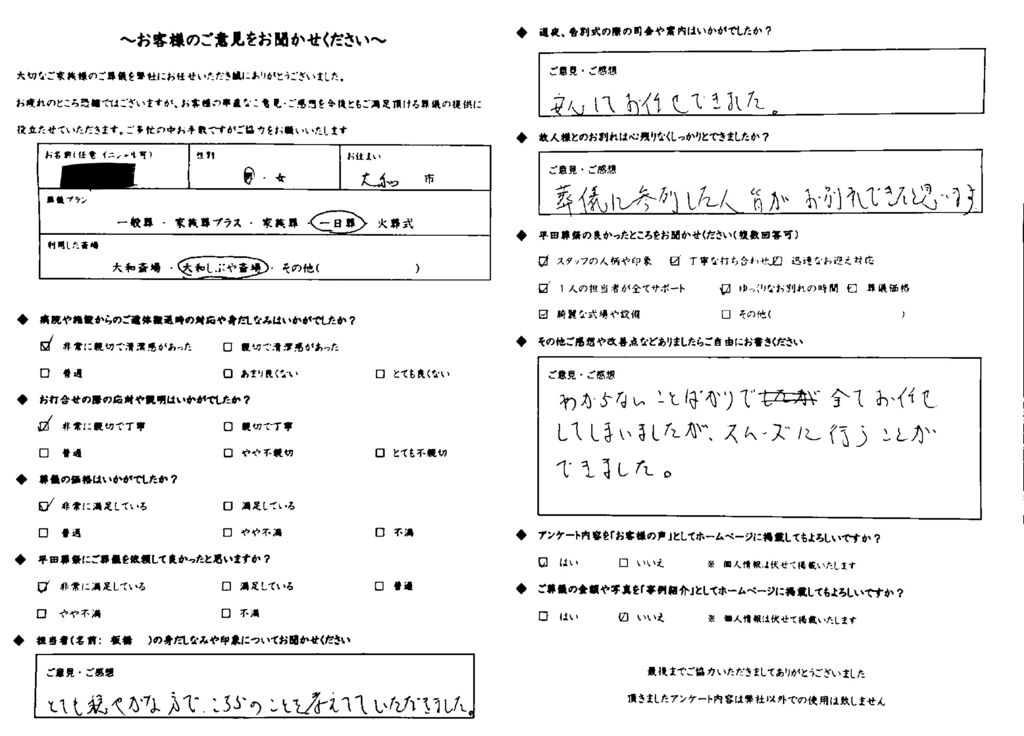 ～お客様のご意見をお聞かせください～
大切なご家族様のご葬儀を弊社にお任せいただき誠にありがとうございました。
お疲れのところ恐縮ではございますが、お客様の率直なご意見・ご感想を今後ともご満足頂ける葬儀の提供に
役立たせていただきます。ご多忙の中お手数ですがご協力をお願いいたします
お名前(任意 イニシャル可) 性別 お住まい
男 ・ 女 大和 市
葬儀プラン
一般葬 ・ 家族葬プラス ・ 家族葬 ・ 一日葬 ・ 火葬式
利用した斎場
大和斎場 ・ 大和しぶや斎場 ・ その他( )
◆ 病院や施設からのご遺体搬送時の対応や身だしなみはいかがでしたか？
☑ 非常に親切で清潔感があった □ 親切で清潔感があった
□ 普通 □ あまり良くない □ とても良くない
◆ お打合せの際の応対や説明はいかがでしたか？
☑ 非常に親切で丁寧 □ 親切で丁寧
□ 普通 □ やや不親切 □ とても不親切
◆ 葬儀の価格はいかがでしたか？
☑ 非常に満足している □ 満足している
□ 普通 □ やや不満 □ 不満
◆ 平田葬祭にご葬儀を依頼して良かったと思いますか？
☑ 非常に満足している □ 満足している □ 普通
□ やや不満 □ 不満
◆ 担当者(名前: 板橋 )の身だしなみや印象についてお聞かせください
ご意見・ご感想
とても穏やかな方で、こちらのことを考えてていただきました。
◆ 通夜、告別式の際の司会や案内はいかがでしたか？
ご意見・ご感想
安心してお任せできました。
◆ 故人様とのお別れは心残りなくしっかりとできましたか？
ご意見・ご感想
葬儀に参列した人皆がお別れできたと思います
◆ 平田葬祭の良かったところをお聞かせください(複数回答可)
☑ スタッフの人柄や印象 ☑ 丁寧な打ち合わせ ☑ 迅速なお迎え対応
☑ 1人の担当者が全てサポート ☑ ゆっくりなお別れの時間 ☑ 葬儀価格
☑ 綺麗な式場や設備 □ その他( )
◆ その他ご感想や改善点などありましたらご自由にお書きください
ご意見・ご感想
わからないことばかりで 全てお任せ
してしまいましたが、スムーズに行うことが
できました。
◆ アンケート内容を「お客様の声」としてホームページに掲載してもよろしいですか？
☑ はい □ いいえ ※ 個人情報は伏せて掲載いたします
◆ ご葬儀の金額や写真を「事例紹介」としてホームページに掲載してもよろしいですか？
□ はい ☑ いいえ ※ 個人情報は伏せて掲載いたします
最後までご協力いただきましてありがとうございました
頂きましたアンケート内容は弊社以外での使用は致しません